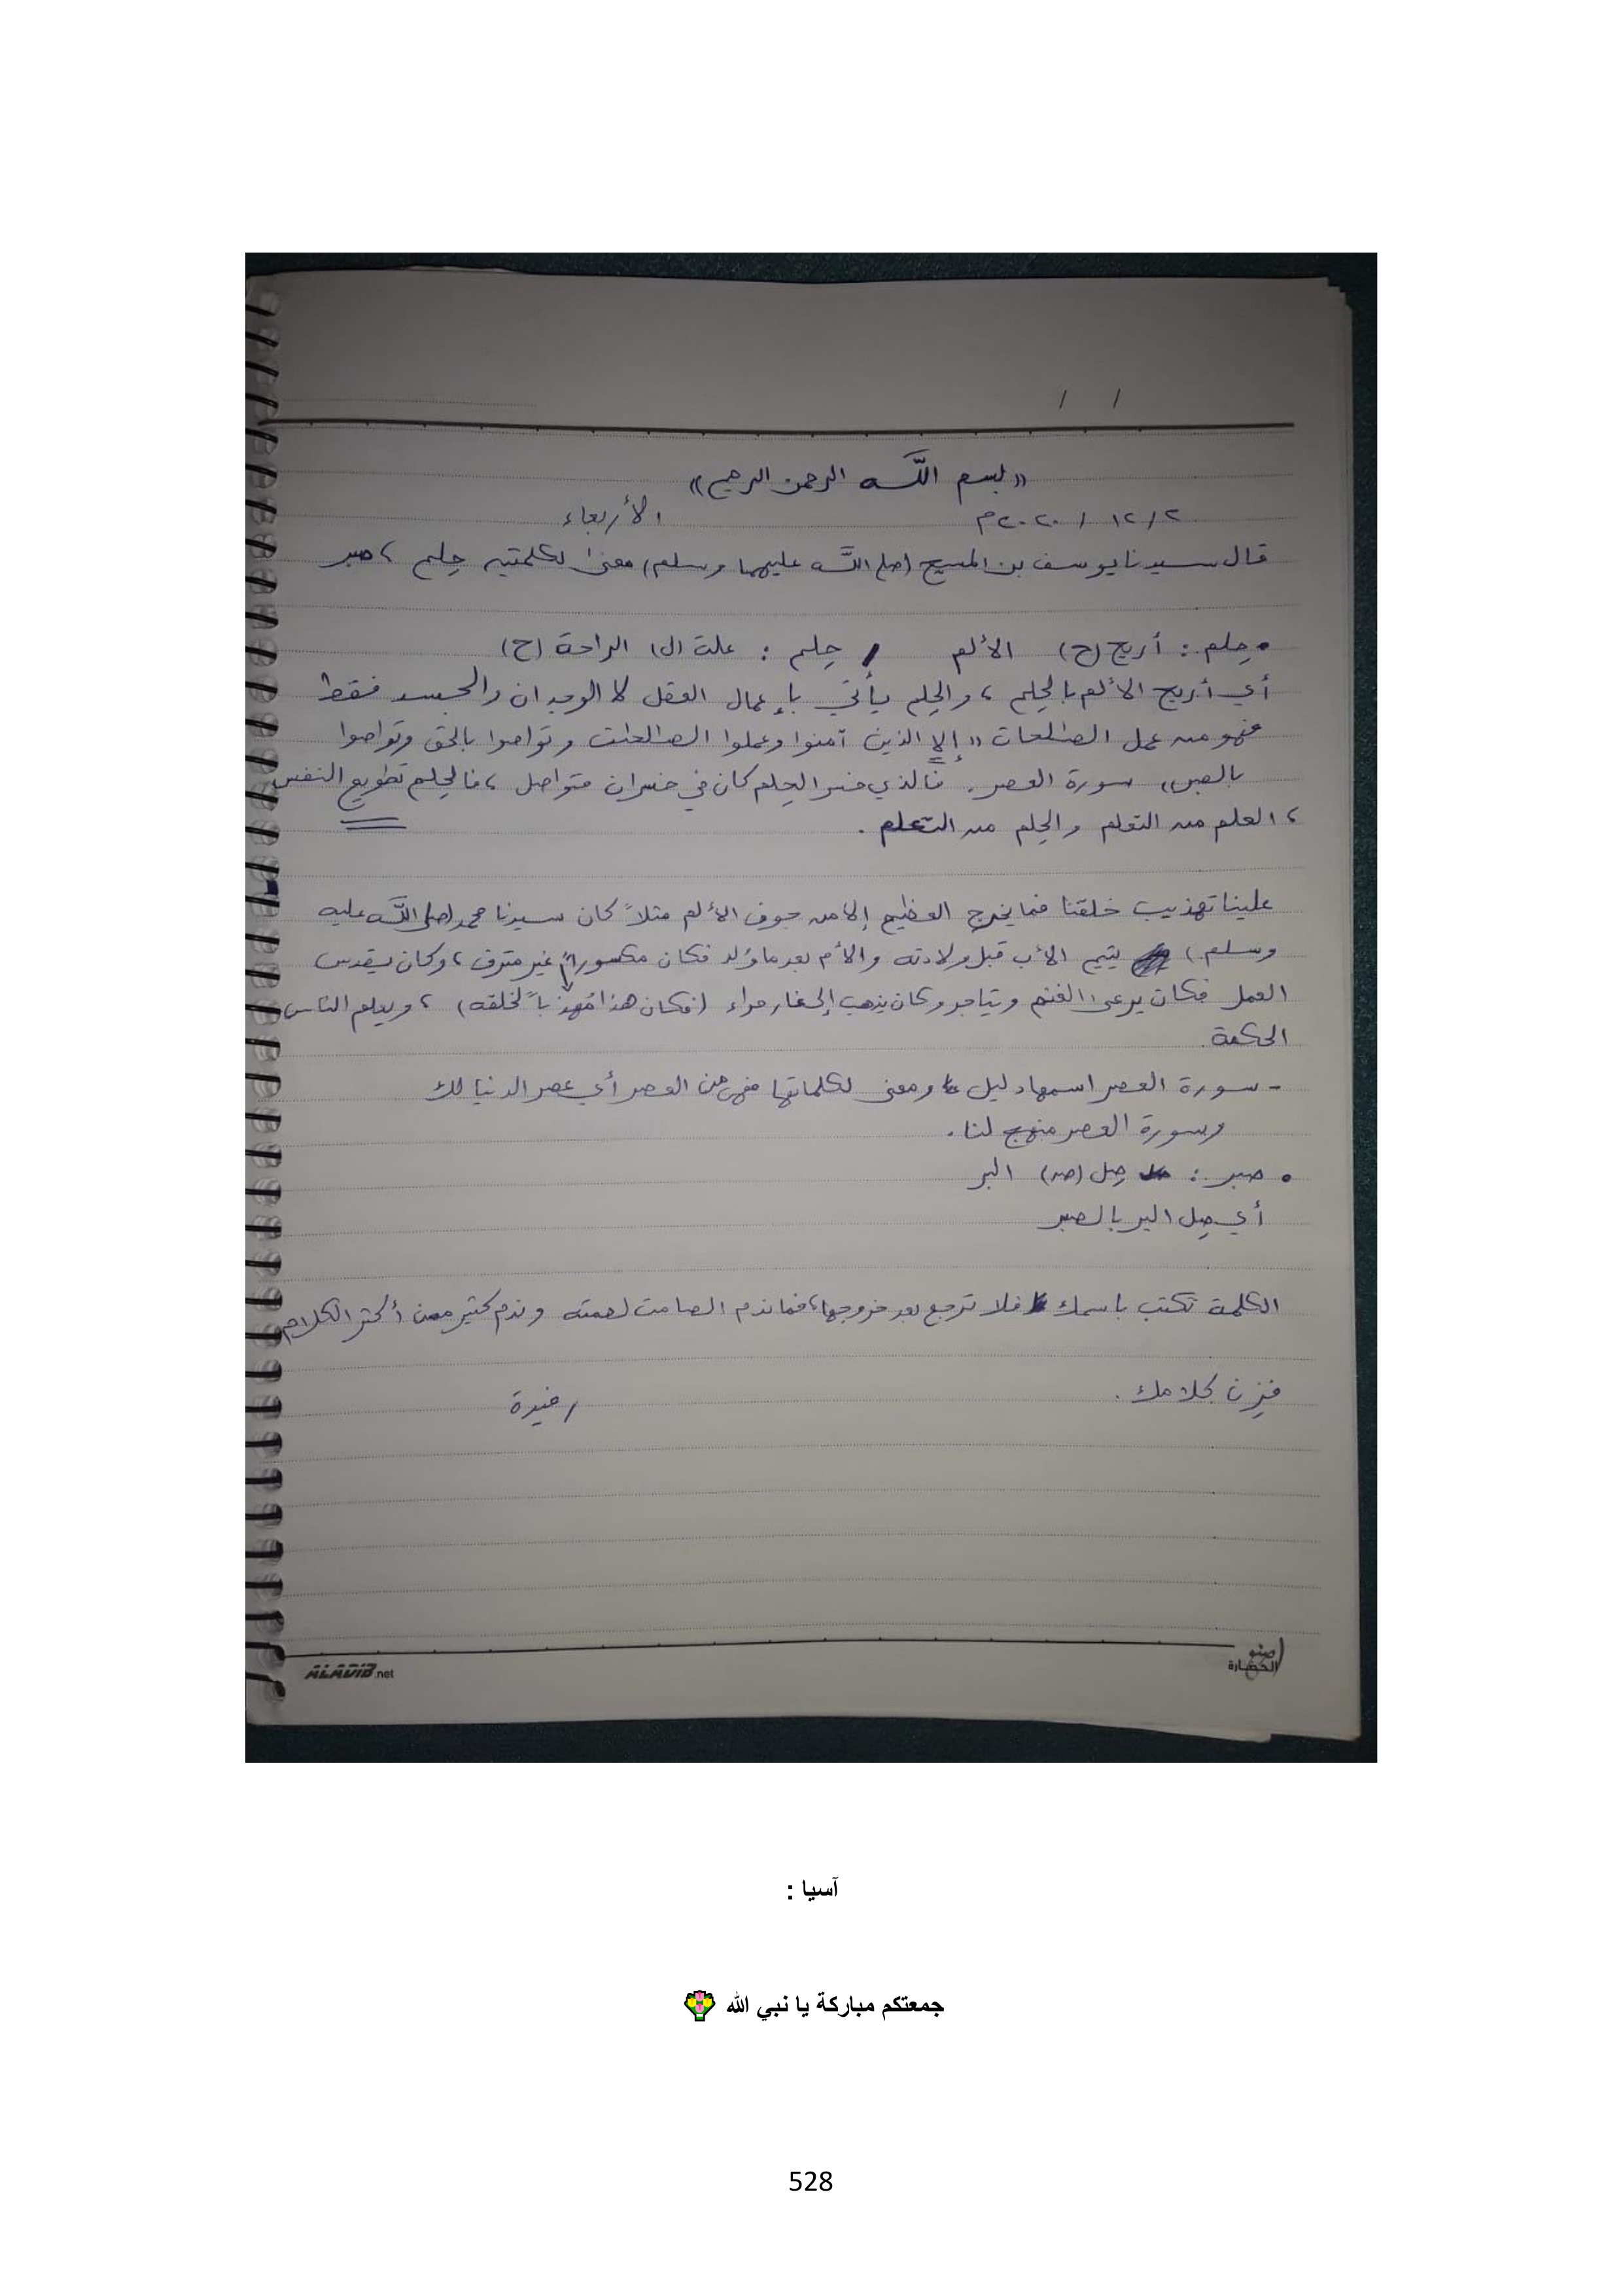 / /
«بسم الله الرحمن الرحيم»
٢/١٢/٢٠٢٠م الأربعاء
قال سيدنا يوسف بن المسيح (صلى الله عليهما وسلم) معنىً لكلمتين حِلم ، صبر
• حِلم : أريح (ح) الألم / حِلم : علت (ل) الراحة (ح)
أي أريح الألم بالحِلم ، والحِلم يأتي بإعمال العقل لا الوجدان والجسد فقط
فهو من عمل الصالحات «إلا الذين آمنوا وعملوا الصالحات وتواصوا بالحق وتواصوا
بالصبر» سورة العصر . فالذي خسر الحِلم كان في خسران متواصل ، فالحِلم تطويع النفس
، العلم من التعلم والحِلم من التحلم .
علينا تهذيب خلقنا فما يخرج العظيم إلا من جوف الألم مثلاً كان سيدنا محمد (صلى الله عليه
وسلم) يتيم الأب قبل ولادته والأم بعدما وُلد فكان مكسوراً غير مترف ، وكان يقدس
العمل فكان يرعى الغنم ويتاجر وكان يذهب إلى غار حراء (فكان هذا مُهذباً لخلقه) ، ويعلم الناس
الحكمة .
- سورة العصر اسمها دليل ومعنى لكلماتها فهي من العصر أي عصر الدنيا لك
وسورة العصر منهج لنا .
• صبر : صِل (صـ) البر
أي صِل البر بالصبر
الكلمة تكتب باسمك فلا ترجع بعد خروجها ، فما ندم الصامت لصمته وندم كثير ممن أكثر الكلام
فزِن كلامك .
/ خيرة
ALADIB.net
صنو
الحضارة
آسيا :
جمعتكم مباركة يا نبي الله 💐
528